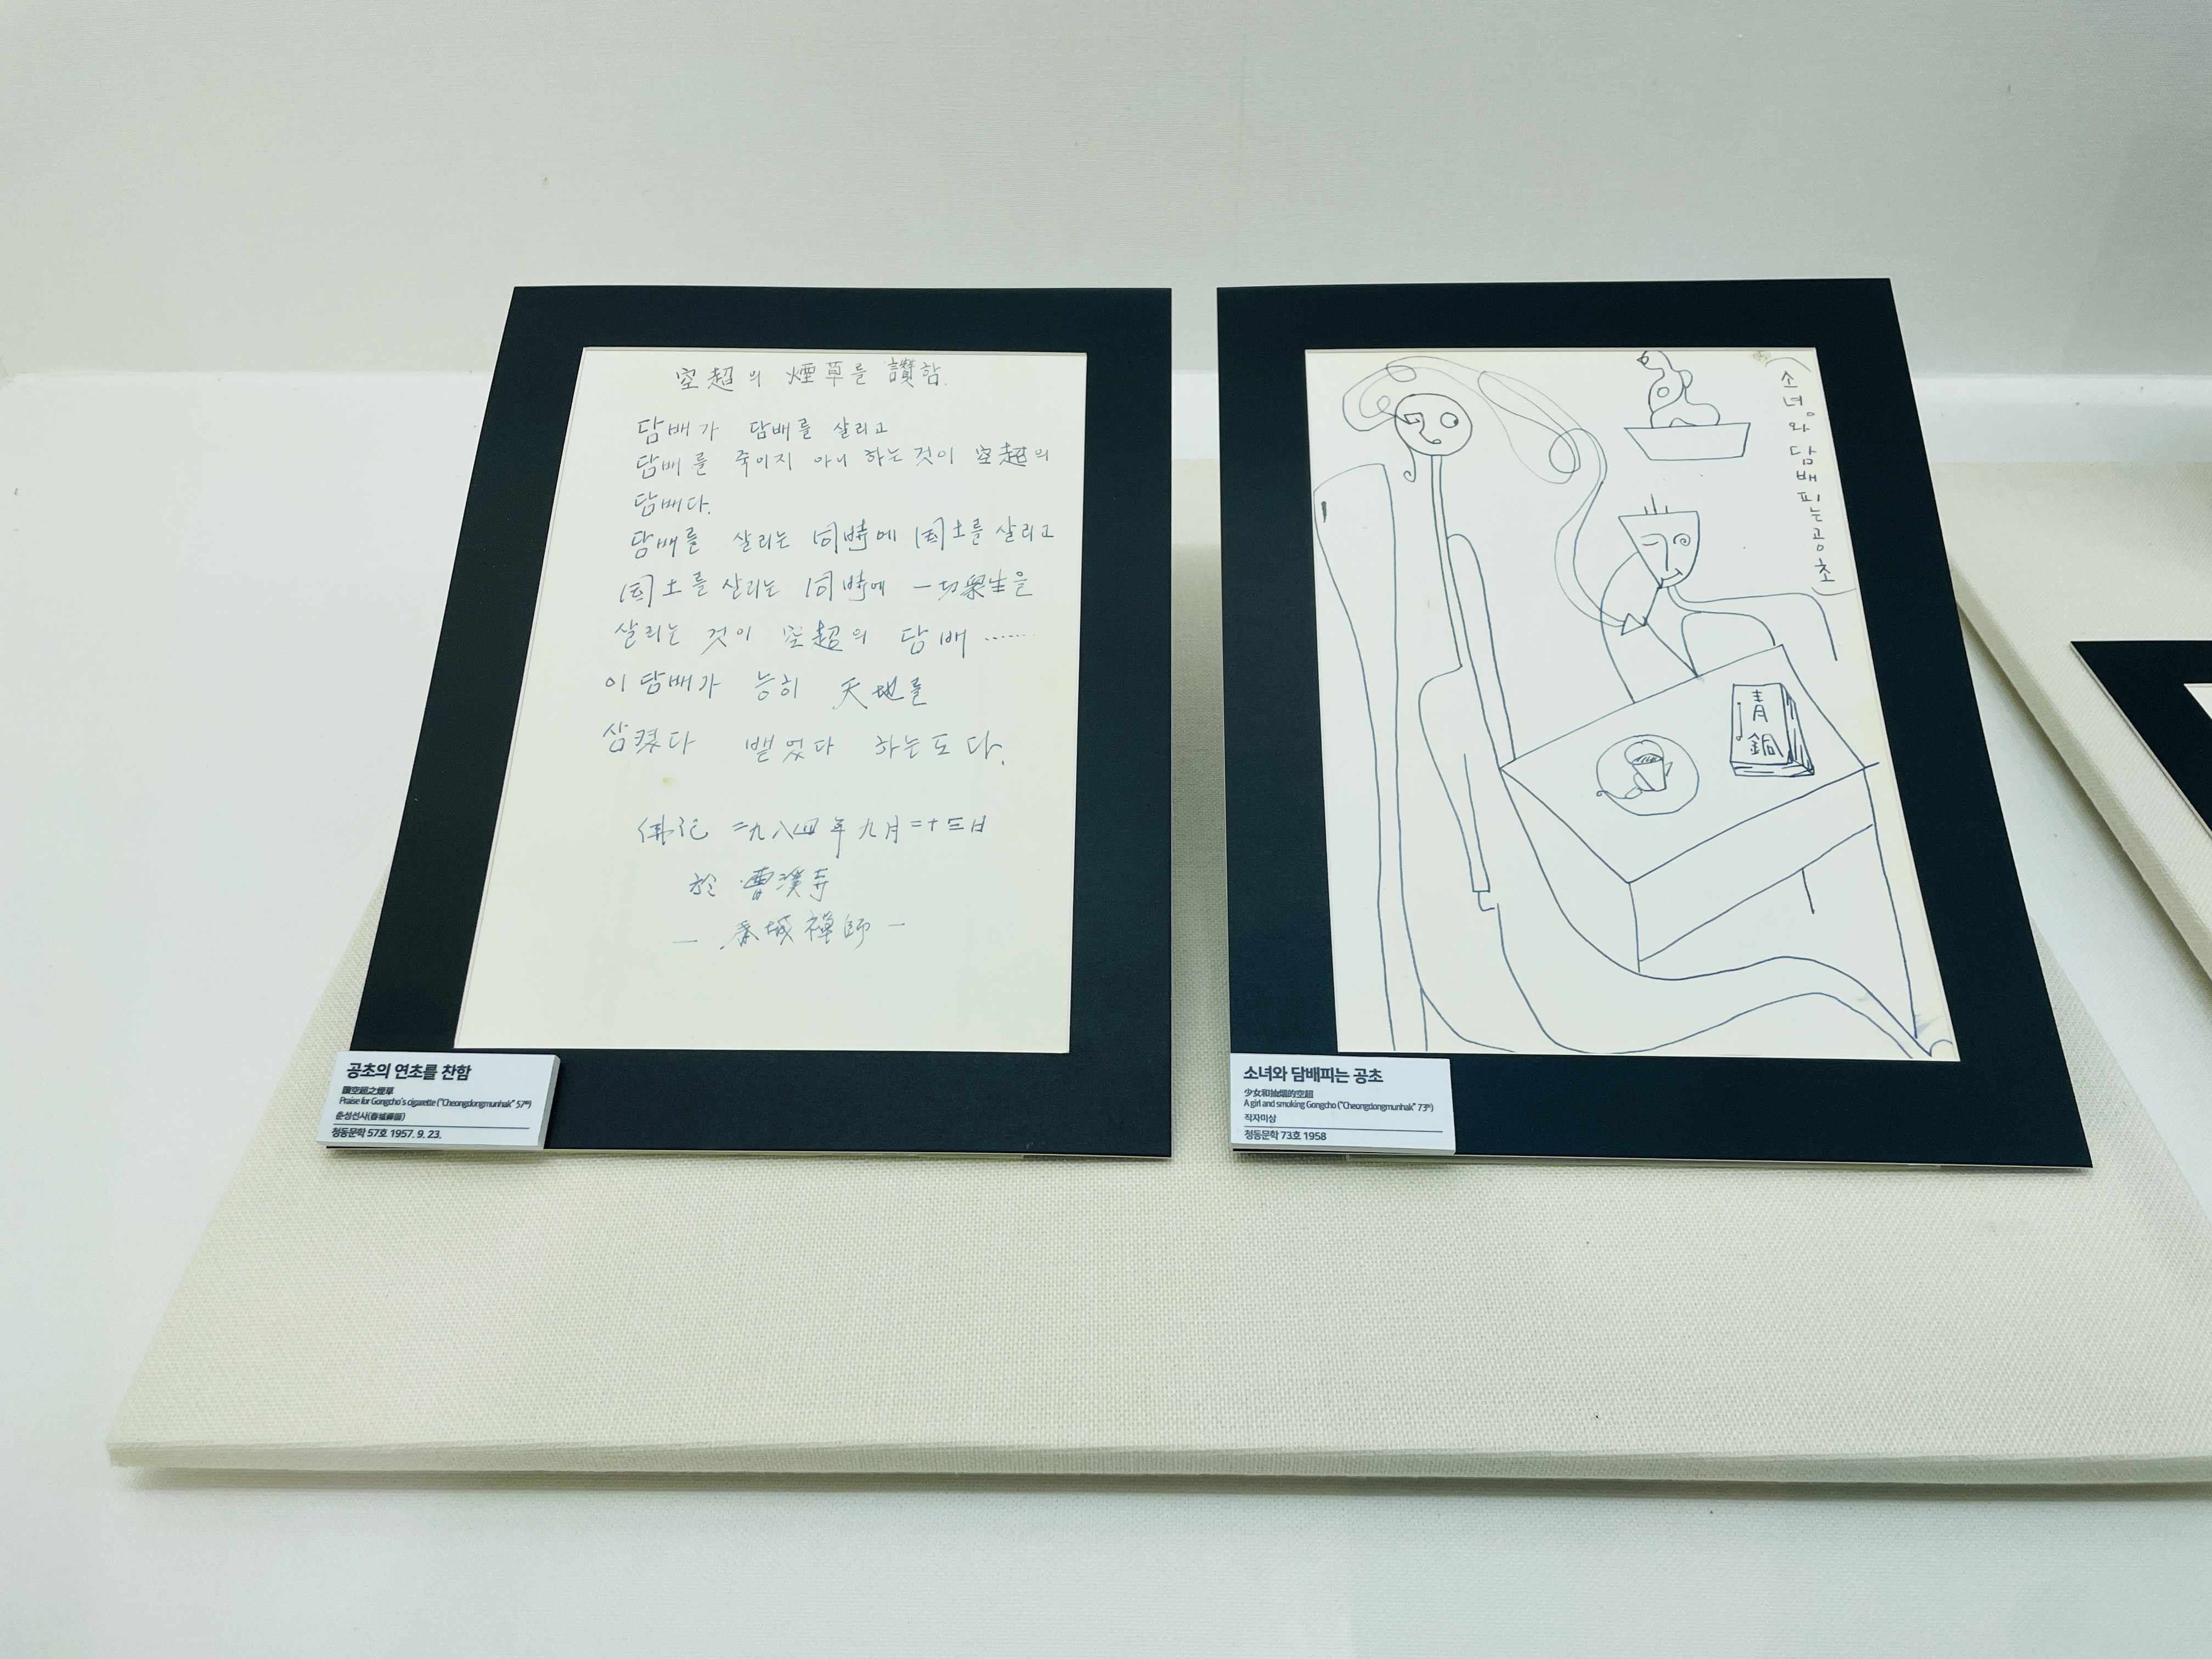 空超의 煙草를 讚함.
담배가 담배를 살리고
담배를 죽이지 아니 하는것이 空超의
담배다.
담배를 살리는 同時에 国土를 살리고
国土를 살리는 同時에 一切衆生을
살리는 것이 空超의 담배……
이 담배가 능히 天地를
삼켰다 뱉었다 하는도다.
佛紀 二九八四年 九月二十三日
於 曹溪寺
— 春城禪師 —
공초의 연초를 찬함
讚空超之煙草
Praise for Gongcho's cigarette ("Cheongdongmunhak" 57th)
춘성선사(春城禪師)
청동문학 57호 1957. 9. 23.
(소녀와 담배피는공초)
靑
銅
소녀와 담배피는 공초
少女和抽烟的空超
A girl and smoking Gongcho ("Cheongdongmunhak" 73th)
작자미상
청동문학 73호 1958